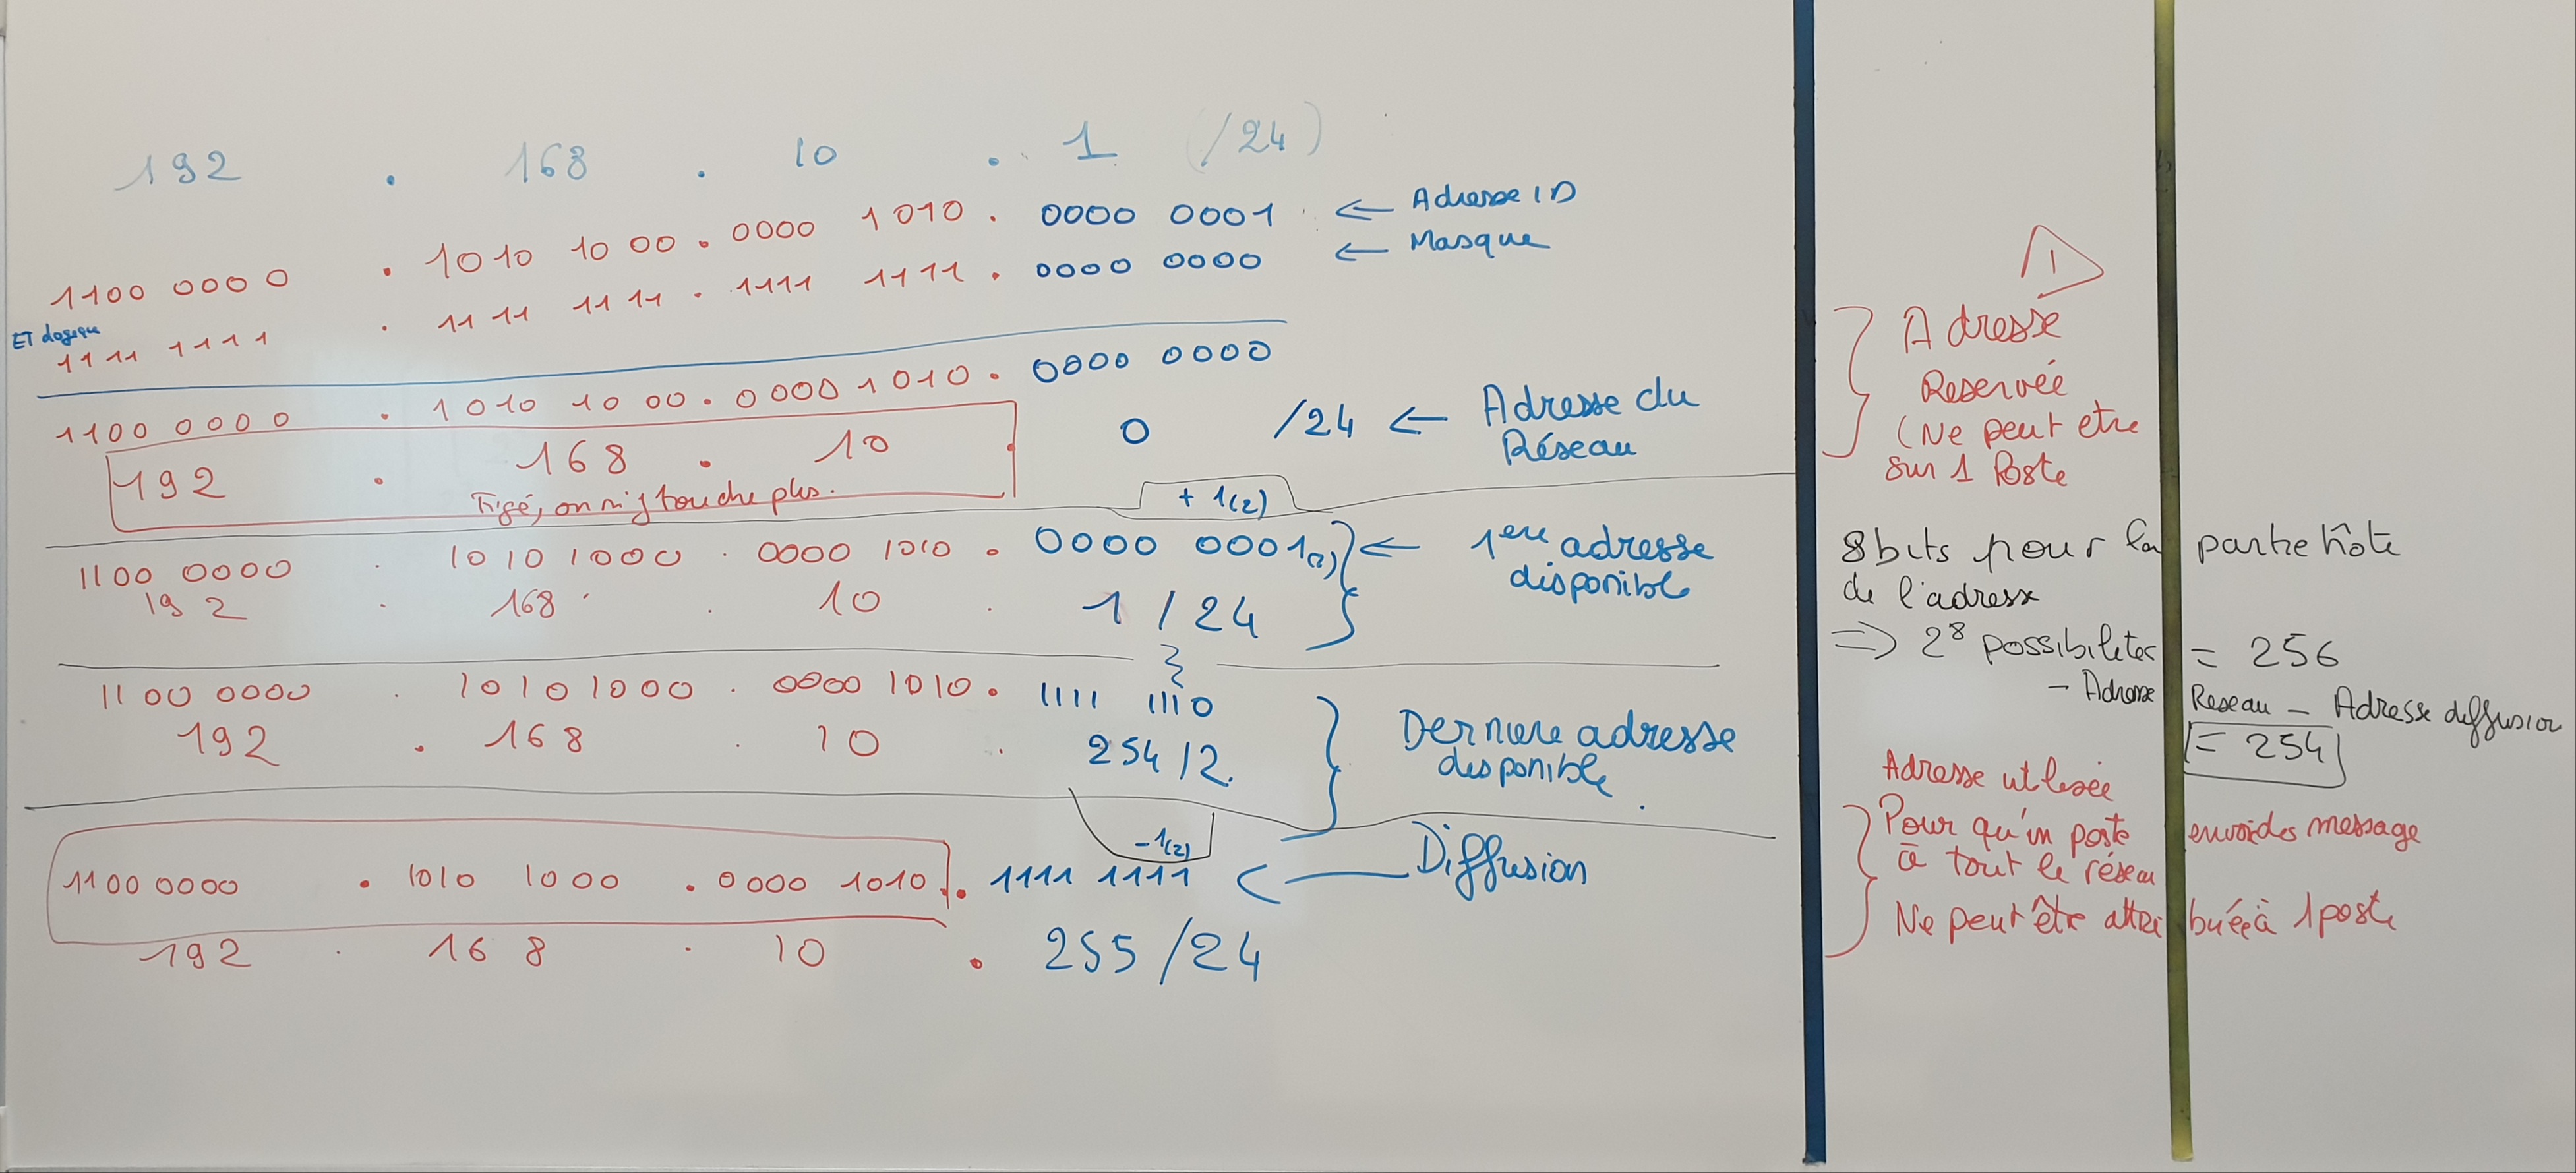 192 . 168 . 10 . 1 (/24)
1100 0000 . 1010 1000 . 0000 1010 . 0000 0001 ← Adresse ID
ET logique
1111 1111 . 1111 1111 . 1111 1111 . 0000 0000 ← Masque
1100 0000 . 1010 1000 . 0000 1010 . 0000 0000
192 . 168 . 10 0 /24 ← Adresse du
Réseau
Figé, on n'y touche plus.
+ 1(2)
1100 0000 . 1010 1000 . 0000 1010 . 0000 0001(2) ← 1ere adresse
disponible
192 . 168 . 10 . 1 / 24
1100 0000 . 1010 1000 . 0000 1010 . 1111 1110
192 . 168 . 10 . 254 /2
Derniere adresse
disponible.
-1(2)
1100 0000 . 1010 1000 . 0000 1010 . 1111 1111 ← Diffusion
192 . 168 . 10 . 255 /24
!
Adresse
Reservée
(Ne peut etre
sur 1 Poste
8 bits pour la partie hôte
de l'adresse
=> 2⁸ possibilites = 256
- Adresse Reseau - Adresse diffusion
= 254
Adresse utilisée
Pour qu'un poste envoi des message
à tout le réseau
Ne peut être attribuée à 1 poste